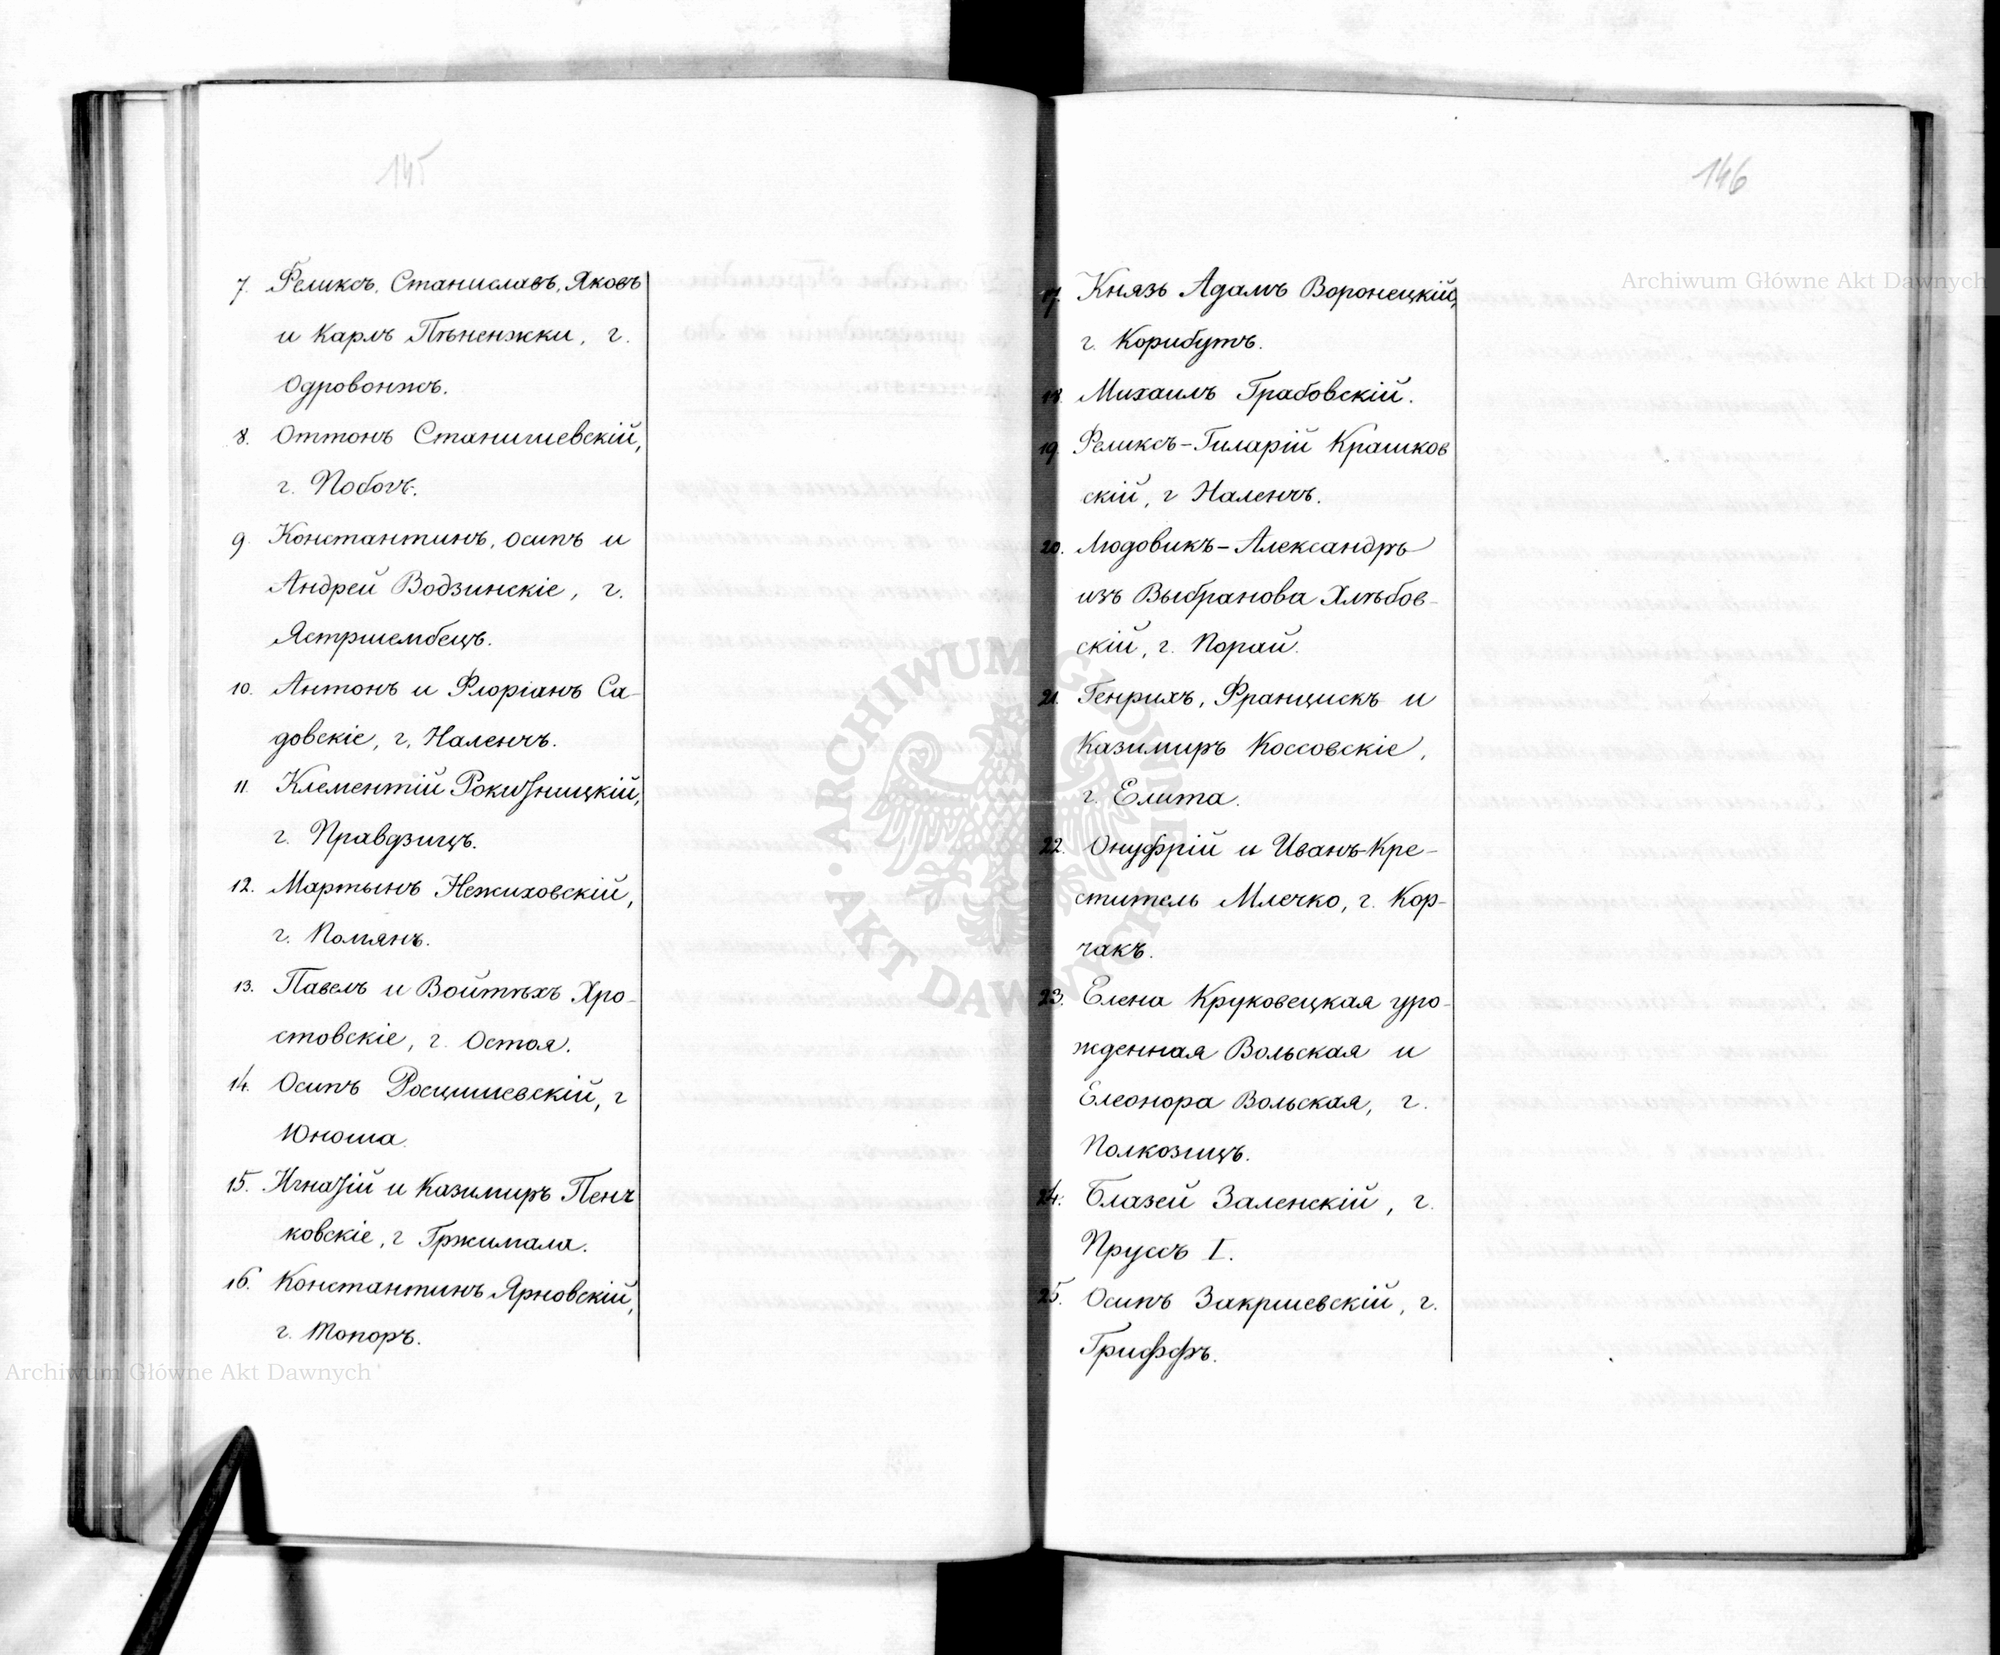 145
7. Феликсъ, Станиславъ, Яковъ
и Карлъ Пѣненжки, г.
Одровонжъ.
8. Оттонъ Станишевскій,
г. Побогъ.
9. Константинъ, Осипъ и
Андрей Водзинскіе, г.
Ястршембецъ.
10. Антонъ и Флоріанъ Са-
довскіе, г. Наленчъ.
11. Клементій Рокитницкій,
г. Правдзицъ.
12. Мартынъ Нежиховскій,
г. Помянъ.
13. Павелъ и Войтѣхъ Хро-
стовскіе, г. Остоя.
14. Осипъ Росцишевскій, г
Юноша.
15. Игнатій и Казимиръ Пенч
ковскіе, г Гржимала.
16. Константинъ Ярновскій,
г. Топоръ.
146
17. Князь Адамъ Воронецкій,
г. Корибутъ.
18. Михаилъ Грабовскій.
19. Феликсъ-Гиларій Крашков
скій, г Наленчъ.
20. Людовикъ-Александръ
изъ Выбранова Хлѣбов-
скій, г. Порай.
21. Генрихъ, Францискъ и
Казимиръ Коссовскіе,
г. Елита.
22. Онуфрій и Иванъ-Кре-
ститель Млечко, г. Кор-
чакъ.
23. Елена Круковецкая уро-
жденная Вольская и
Елеонора Вольская, г.
Полкозицъ.
24. Блазей Заленскій, г.
Пруссъ I.
25. Осипъ Закршевскій, г.
Гриффъ.
Archiwum Główne Akt Dawnych
Archiwum Główne Akt Dawnych
ARCHIWUM GŁÓWNE AKT DAWNYCH